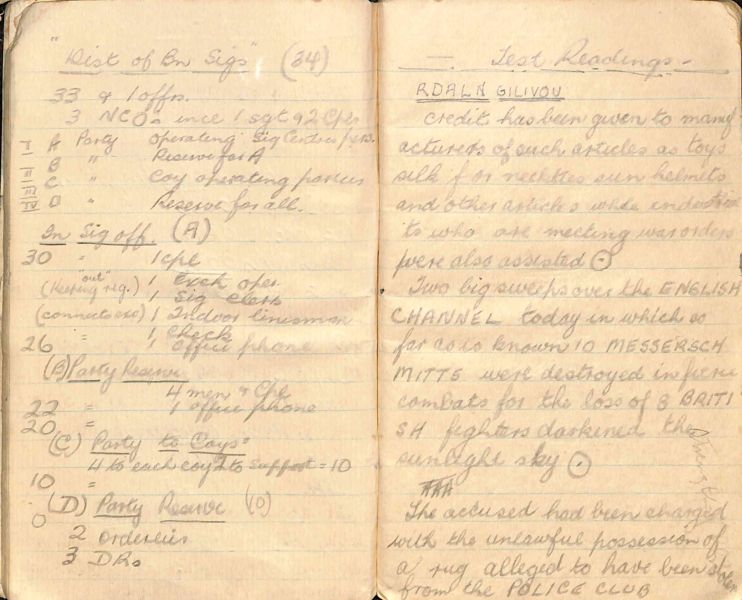 "Dist of Bn Sigs" (34)
33 & 1 offrs.
3 NCOs ince 1 sgt & 2 Cpls
I A Party operating Sig Centres pers.
II B " Reserve for A
III C " Coy operating parties
IV D " Reserve for all.
Bn Sig off. (A)
30 " 1 cpl
"out" 1 Exch oper.
(Keeping reg.) 1 Sig clerk
(connects exc) 1 Indoor linesman
" 1 check
26 1 office phone
(B) Party Reserve
4 men & Cpl
22 " 1 office phone
20 "
(C) Party to Coys =
4 to each coy 2 to support = 10
10 "
(D) Party Reserve (0)
0
2 orderlies
3 DRs
— Test Readings -
RDALN GILIVOU
credit has been given to manuf
acturers of such articles as toys
silk f or neckties sun helmets
and other article s while industries
to who are meeting war orders
were also assisted .
Two big sweeps over the ENGLISH
CHANNEL today in which so
far as is known 10 MESSERSCH
MITTS were destroyed in fierce
combats for the loss of 8 BRITI
SH fighters darkened the
sunlight sky .
AAA
The accused had been charged
with the unlawful possession of
a rug alleged to have been stolen
from the POLICE CLUB